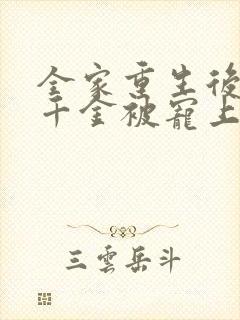 全家重生後
千金被寵上
三雲岳斗